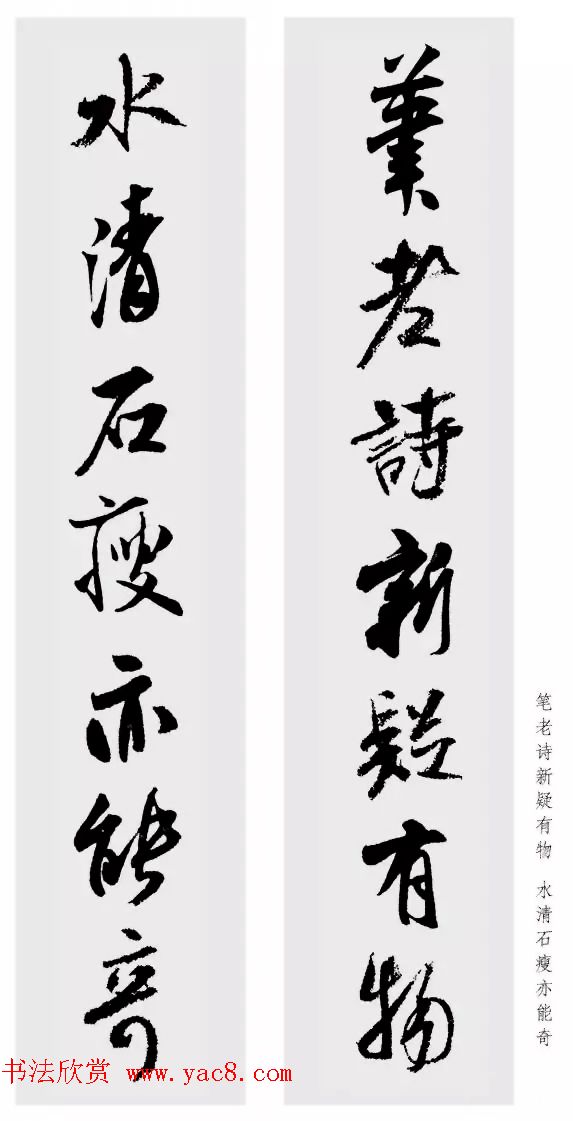 筆老詩新疑有物
水清石瘦亦能奇
笔老诗新疑有物 水清石瘦亦能奇
书法欣赏 www.yac8.com